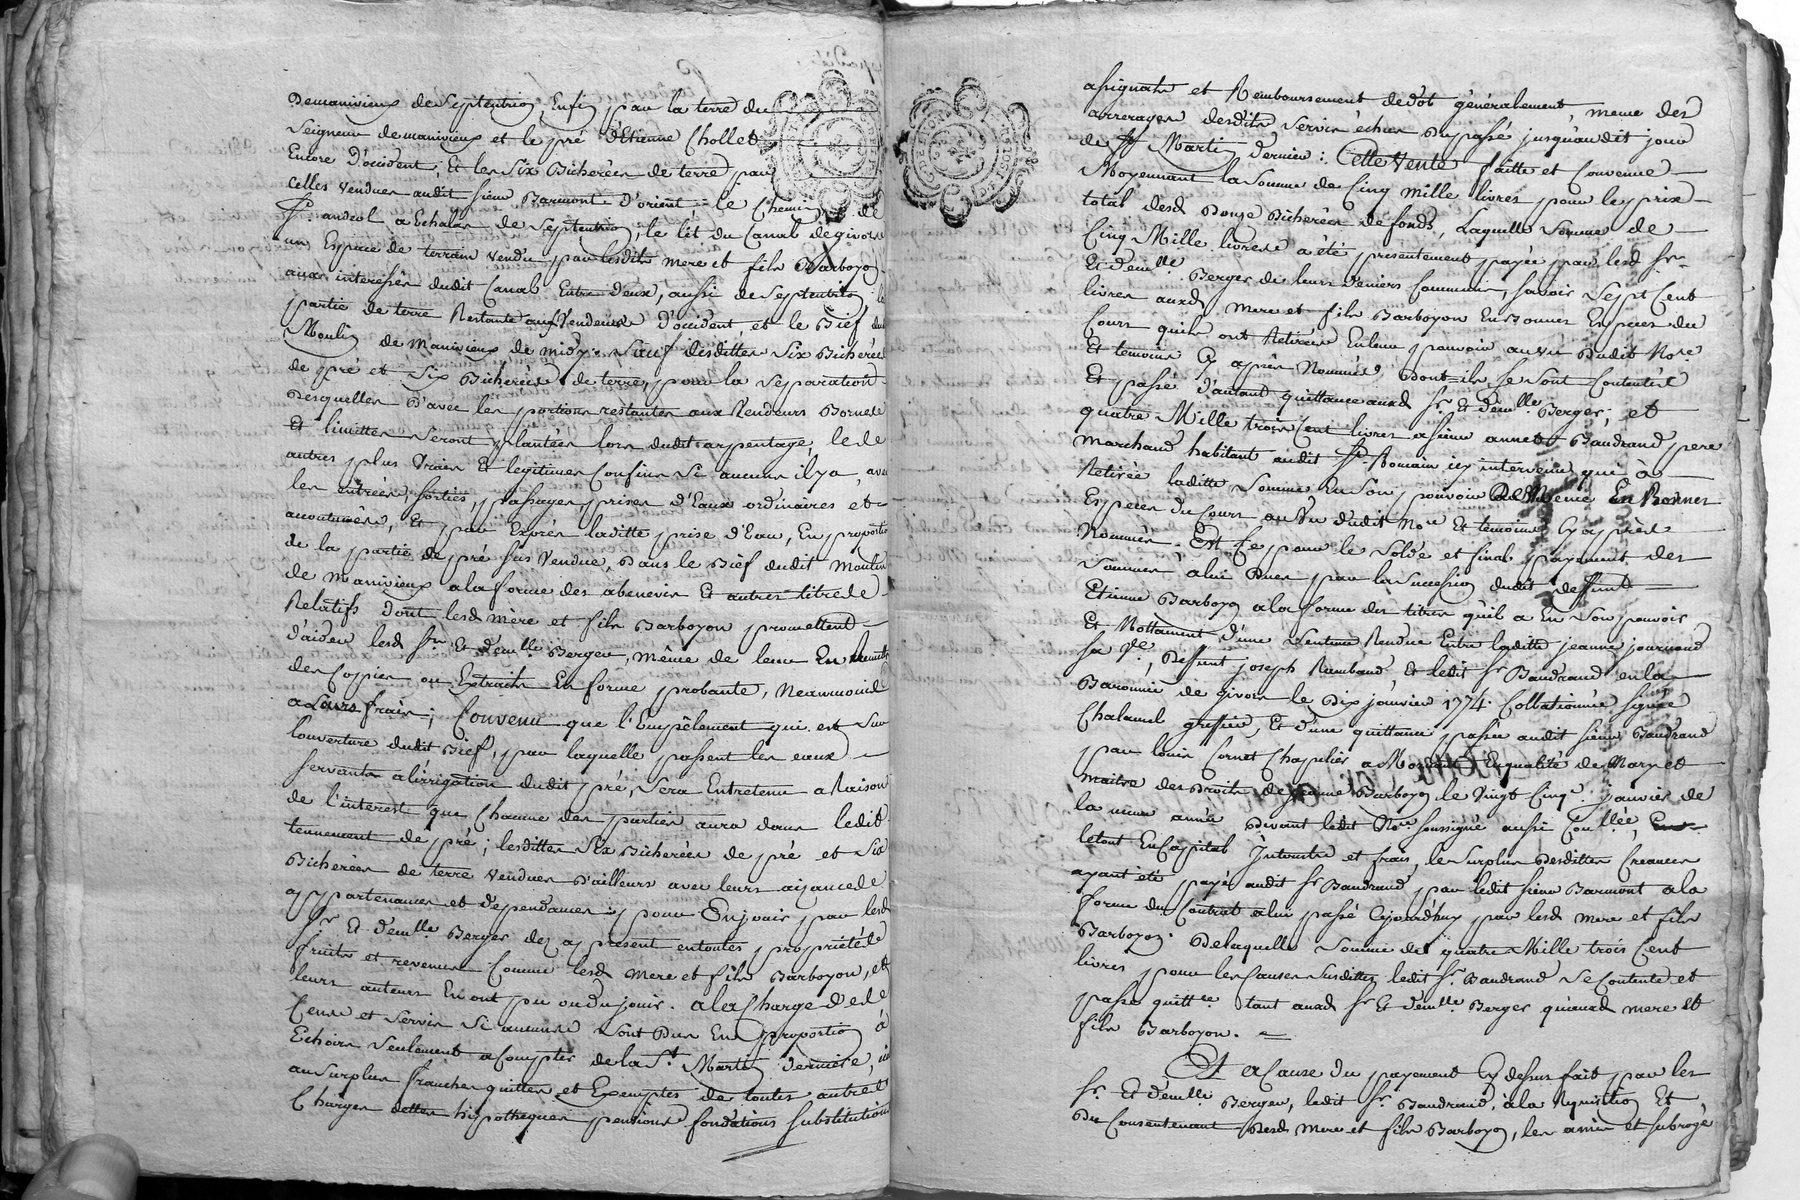 Demanivieux de Septentrion, Enfin par la terre du
Seigneur de manivieux et le pré d'Etienne Chollet
Encore d'occident; Et les Six Bicherées de terre par
celles vendues audit sieur Barmont d'orient, le Chemin de
St andeol a Echalas de Septentrion, le lit du Canal de givors
un Espace de terrain vendu par lesdits mere et fils Barboyon
aux interessés dudit Canal Entre deux, aussi de Septentrion; la
partie de terre Restante aux Vendeurs d'occident, et le Bief dud
Moulin de Manivieux de midy. Sauf desdittes Six Bicherées
de pré et Six Bicherées de terre, pour la Separation
Desquelles d'avec les portions restantes aux Vendeurs Bornes
Et limittes Seront plantées lors dudit arpentage, le
autres plus Vrais Et legitimes Confins Si aucuns il y a, avec
les entrées, sorties, passages, prises d'Eaux ordinaires et
accoutumées, Et par Exprès laditte prise d'Eau, En proportion
de la partie de pré sus Vendue, Dans le Bief dudit Moulin
de Manivieux a la forme des abenevis Et autres titres
Relatifs dont lesd mère et fils Barboyon promettent
d'aider lesd Sr. Et demlle. Berger, même de leur En
des Copies ou Extraits En forme probante, Neanmoins
a Leurs frais; Convenu que l'Empêlement qui est Sur
l'ouverture dudit Bief, par laquelle passent les eaux
servants a l'irrigation dudit pré, Sera Entretenu a Raison
de l'interest que Chacune des parties aura dans ledit
tennement de pré; lesdittes Six Bicherées de pré et Six
Bicherées de terre Vendues d'ailleurs avec leurs aisances
appartenances et dependances pour En jouir par lesd
Sr. Et demlle. Berger des a present en toutes propriété
fruits et revenus Comme lesd mere et fils Barboyon, et
leurs auteurs En ont pu ou du jouir. a la Charge d
Cens et Servis Si aucuns Sont Dus En proportion, à
Echoir Seulement a Compter de la St Martin derniere,
au Surplus franches quittes et Exemptes de toutes autres
Charges dettes hipotheques pensions fondations substitutions
assignats et Remboursement de dot généralement, meme des
arrerages desdits Servis échus du passé jusqu'audit jour
de St Martin dernier: Cette Vente faitte et Convenue
Moyennant la Somme de Cinq Mille livres pour le prix
total desd Douze Bicherées de fonds, Laquelle Somme de
Cinq Mille livres a été presentement payée par lesd Sr
Et demlle. Berger de leurs deniers Communs, savoir Sept Cent
livres auxd Mere et fils Barboyon En Bonnes Especes du
Cours qu'ils ont Retirées En leur pouvoir au vu Dudit Nore
Et temoins Cy après Nommés, Dont ils Se Sont Contentés
Et passé d'autant quittance auxd Sr. Et demlle. Berger; et
quatre Mille trois Cent livres a sieur annet Baudrand pere
marchand habitant audit St. Romain icy intervenu qui a
Retirée laditte Somme En Son pouvoir De Meme En Bonnes
Especes du Cours au Vu dudit Nore Et temoins Cy après
Nommés. Et Ce pour le Solde et final payement des
Sommes a lui Dues par la Succession dudit deffunt
Etienne Barboyon a la forme des titres qu'il a En Son pouvoir
Et Nottament d'une Sentence Rendue Entre laditte jeanne journoud
Sa ve, Deffunt joseph Rambaud, Et ledit Sr Baudrand en la
Baronnie de givors le Dix janvier 1774. Collationnée Signée
Chalamel greffier, Et d'une quittance passée audit sieur Baudrand
par louis Cornet Chapelier a En qualité de Mary et
maitre des Droits de jeanne Barboyon le Vingt Cinq. janvier de
la meme année Devant ledit Nore soussigné aussi Conllée,
le tout En Capital Interets et frais, le Surplus Desdittes Creances
ayant été payé audit Sr Baudrand par ledit sieur Barmont a la
forme du Contrat a lui passé Cejourd'huy par lesd mere et fils
Barboyon. De laquelle Somme de quatre Mille trois Cent
livres pour les Causes Susdittes ledit Sr. Baudrand Se Contente et
passe quittce tant auxd Sr Et demlle. Berger qu'auxd mere et
fils Barboyon.
Et a Cause du payement Cy dessus fait par les
Sr. Et demlle. Berger, ledit Sr. Baudrand, à la Requisition Et
Du Consentement Desd Mere et fils Barboyon, les a mis et subrogé